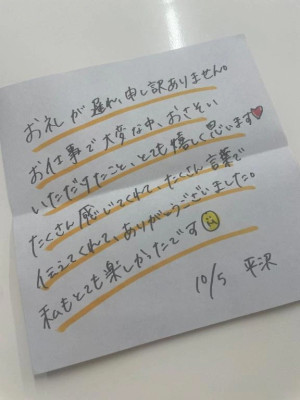 お礼が遅れ、申し訳ありません。
お仕事で大変な中、おさそい
いただけたこと、とても嬉しく思います
たくさん感じてくれて、たくさん言葉で
伝えてくれて、ありがとうございました。
私もとても楽しかったです
10/5 平沢